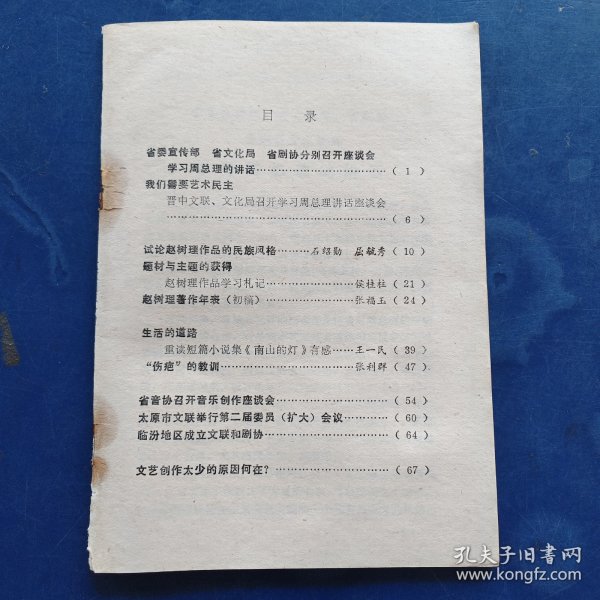 目 录
省委宣传部 省文化局 省剧协分别召开座谈会
学习周总理的讲话……………………………( 1 )
我们需要艺术民主
晋中文联、文化局召开学习周总理讲话座谈会
……………………………………………( 6 )
试论赵树理作品的民族风格………石绍勋 屈毓秀 ( 10 )
题材与主题的获得
赵树理作品学习札记……………………侯桂柱 ( 21 )
赵树理著作年表（初稿）…………………张福玉 ( 24 )
生活的道路
重读短篇小说集《南山的灯》有感……王一民 ( 39 )
“伤疤”的教训……………………………张利群 ( 47 )
省音协召开音乐创作座谈会……………………( 54 )
太原市文联举行第二届委员（扩大）会议………( 60 )
临汾地区成立文联和剧协………………………( 64 )
文艺创作太少的原因何在？……………………( 67 )
孔夫子旧书网
www.kongfz.com